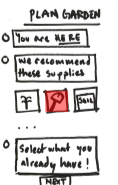 PLAN GARDEN
You are HERE
We recommend
these supplies
SOIL
...
Select what you
already have!
NEXT